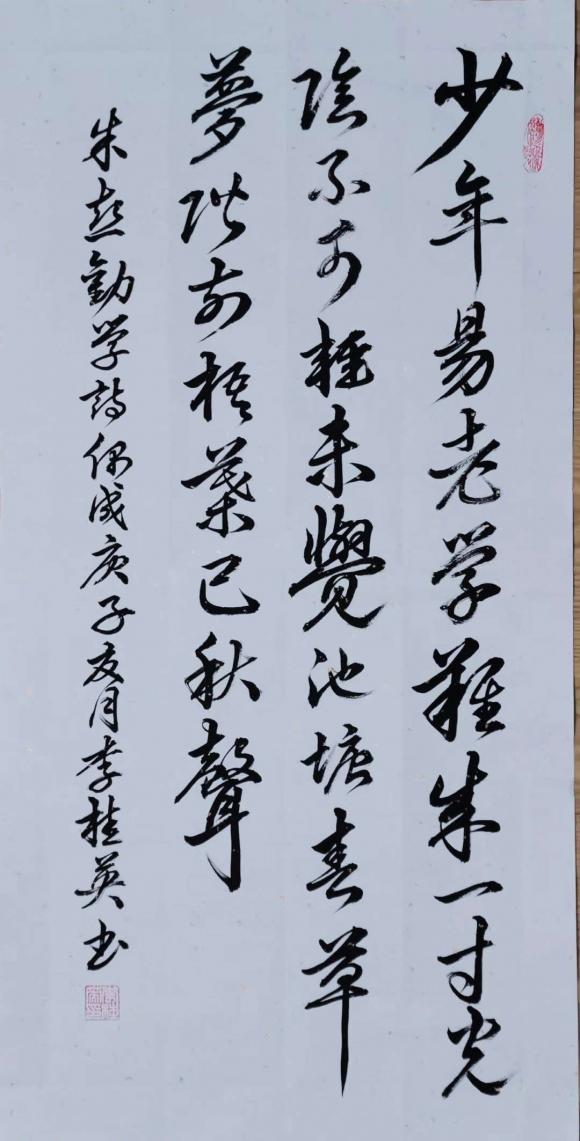 少年易老学難成一寸光
陰不可輕未覺池塘春草
夢階前梧葉已秋聲
朱熹勸学詩偶成庚子夏月李桂英书